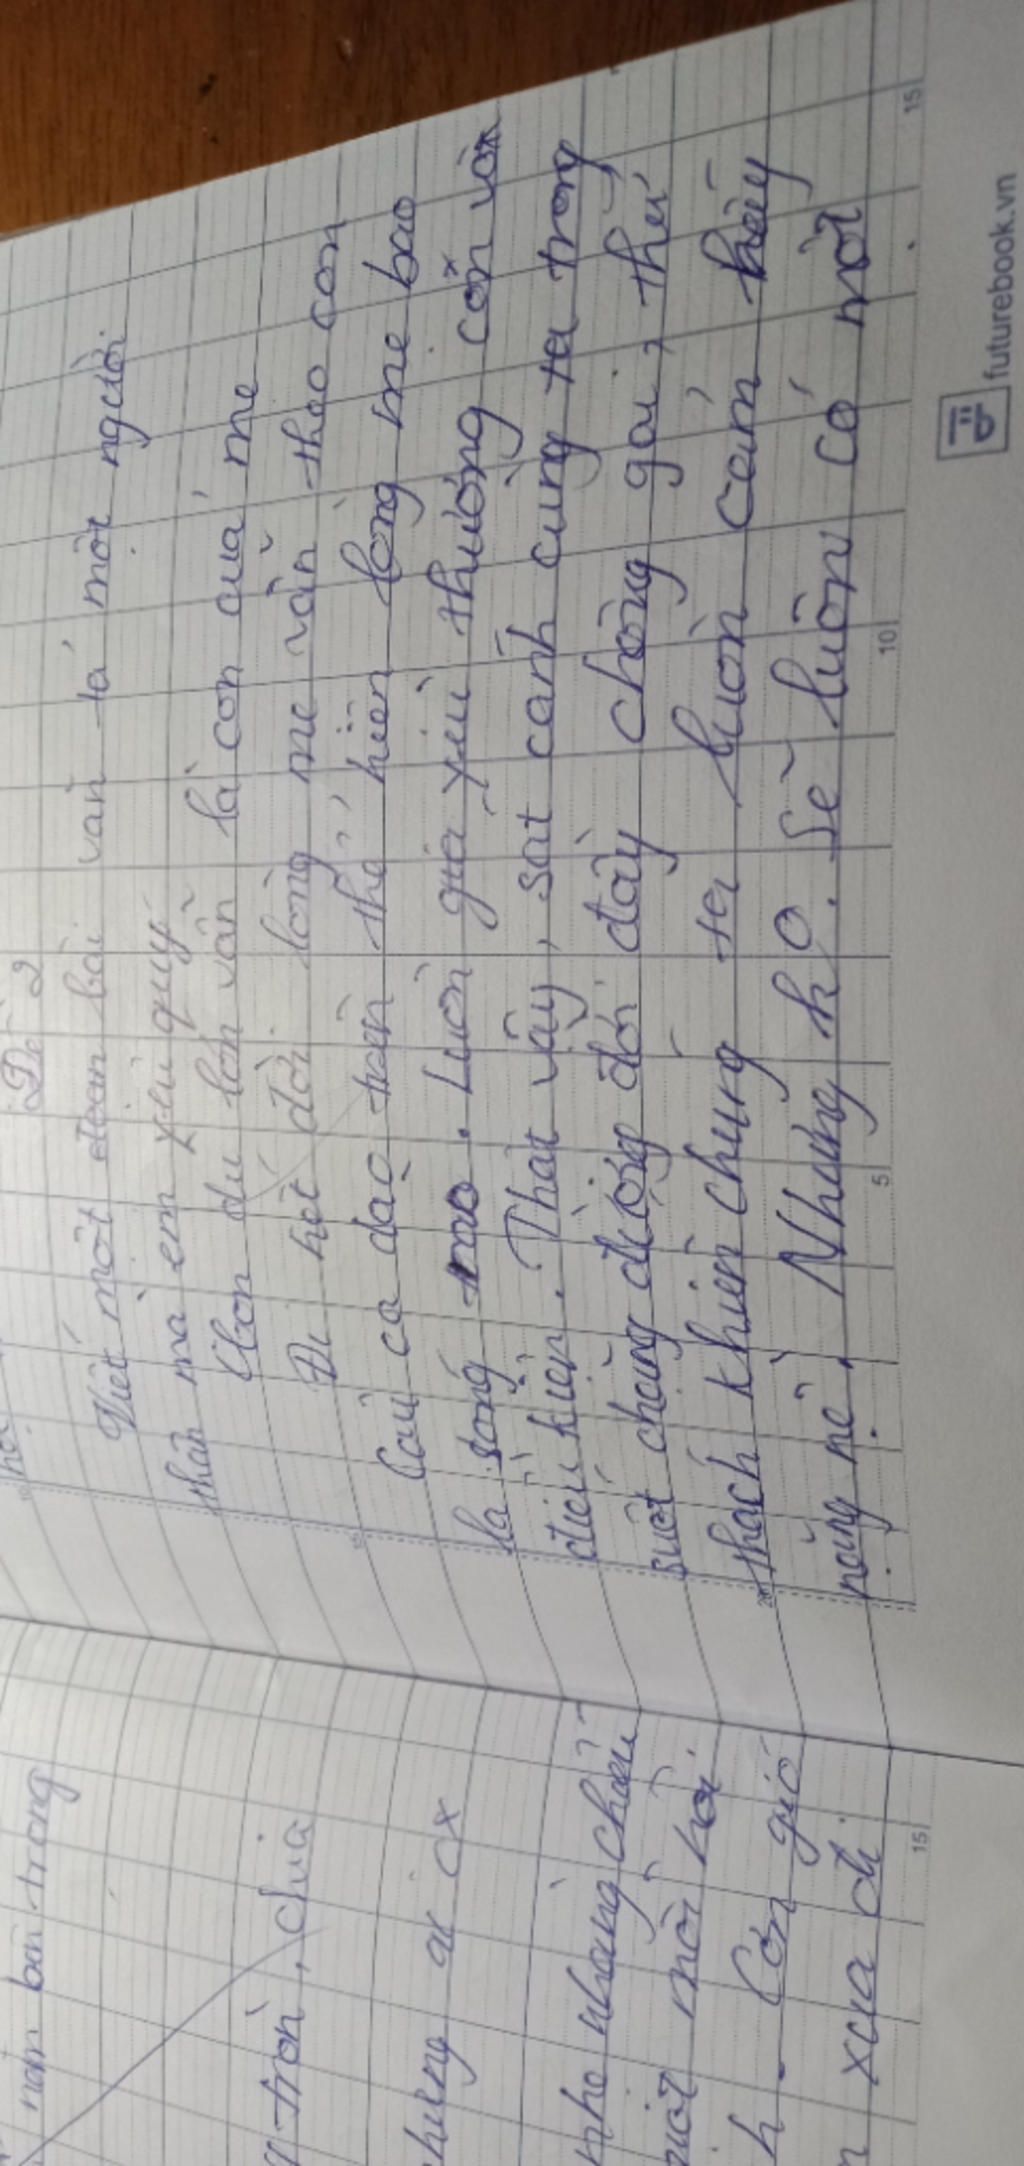 Đề 2
Viết một đoạn bài văn tả một người
thân mà em yêu quý
Con dù lớn vẫn là con của mẹ
Đi hết đời lòng mẹ vẫn theo con
Câu ca dao trên thể hiện lòng mẹ bao
la sóng trào. Luôn giá yêu thương con vô
điều kiện. Thật vậy, sát cánh cùng ta trong
suốt chặng đường đời đầy chông gai, thử
thách khiến chúng ta luôn cảm thấy
nặng nề. Nhưng ko. Sẽ luôn có một
nằm bên trong
tròn, chưa
chưng
nhẹ nhàng chiếu
một mồ hôi.
h - Cơn gió
xua đi
5
10
15
15
20
futurebook.vn